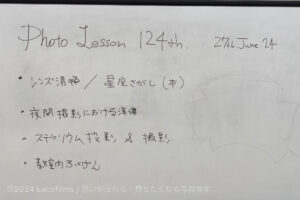 Photo Lesson 124th. 27th. June 24
・レンズ清掃 / 星座さがし(本)
・夜間撮影における準備
・ステラリウム投影 & 撮影
・教室内
©2024 Lacofilms / 思いが伝わる!見せたくなる写真教室